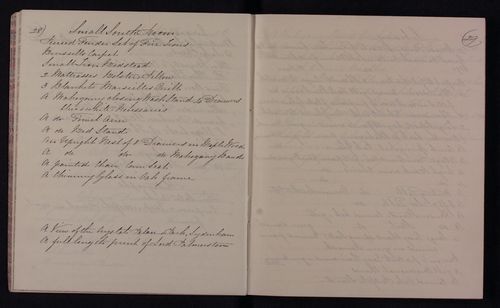 28)
Small South Room
Fender Set of Fire Irons
Brussells Carpet
Small Iron Bedstead
2 Mattresses Bolster & Pillow
3 Blankets Marseilles Quilt
A Mahogany closing Wash Stand & Drawers
Blue & white
A do Towel Airer
A do Bed Stand
An Upright Nest of 8 Drawers in Maple Wood
A do do do Mahogany Bands
A painted Chair Cane Seat
A Chimney Glass in Oak frame
A View of the Crystal Palace & Park, Sydenham
A full length print of Lord Palmerston